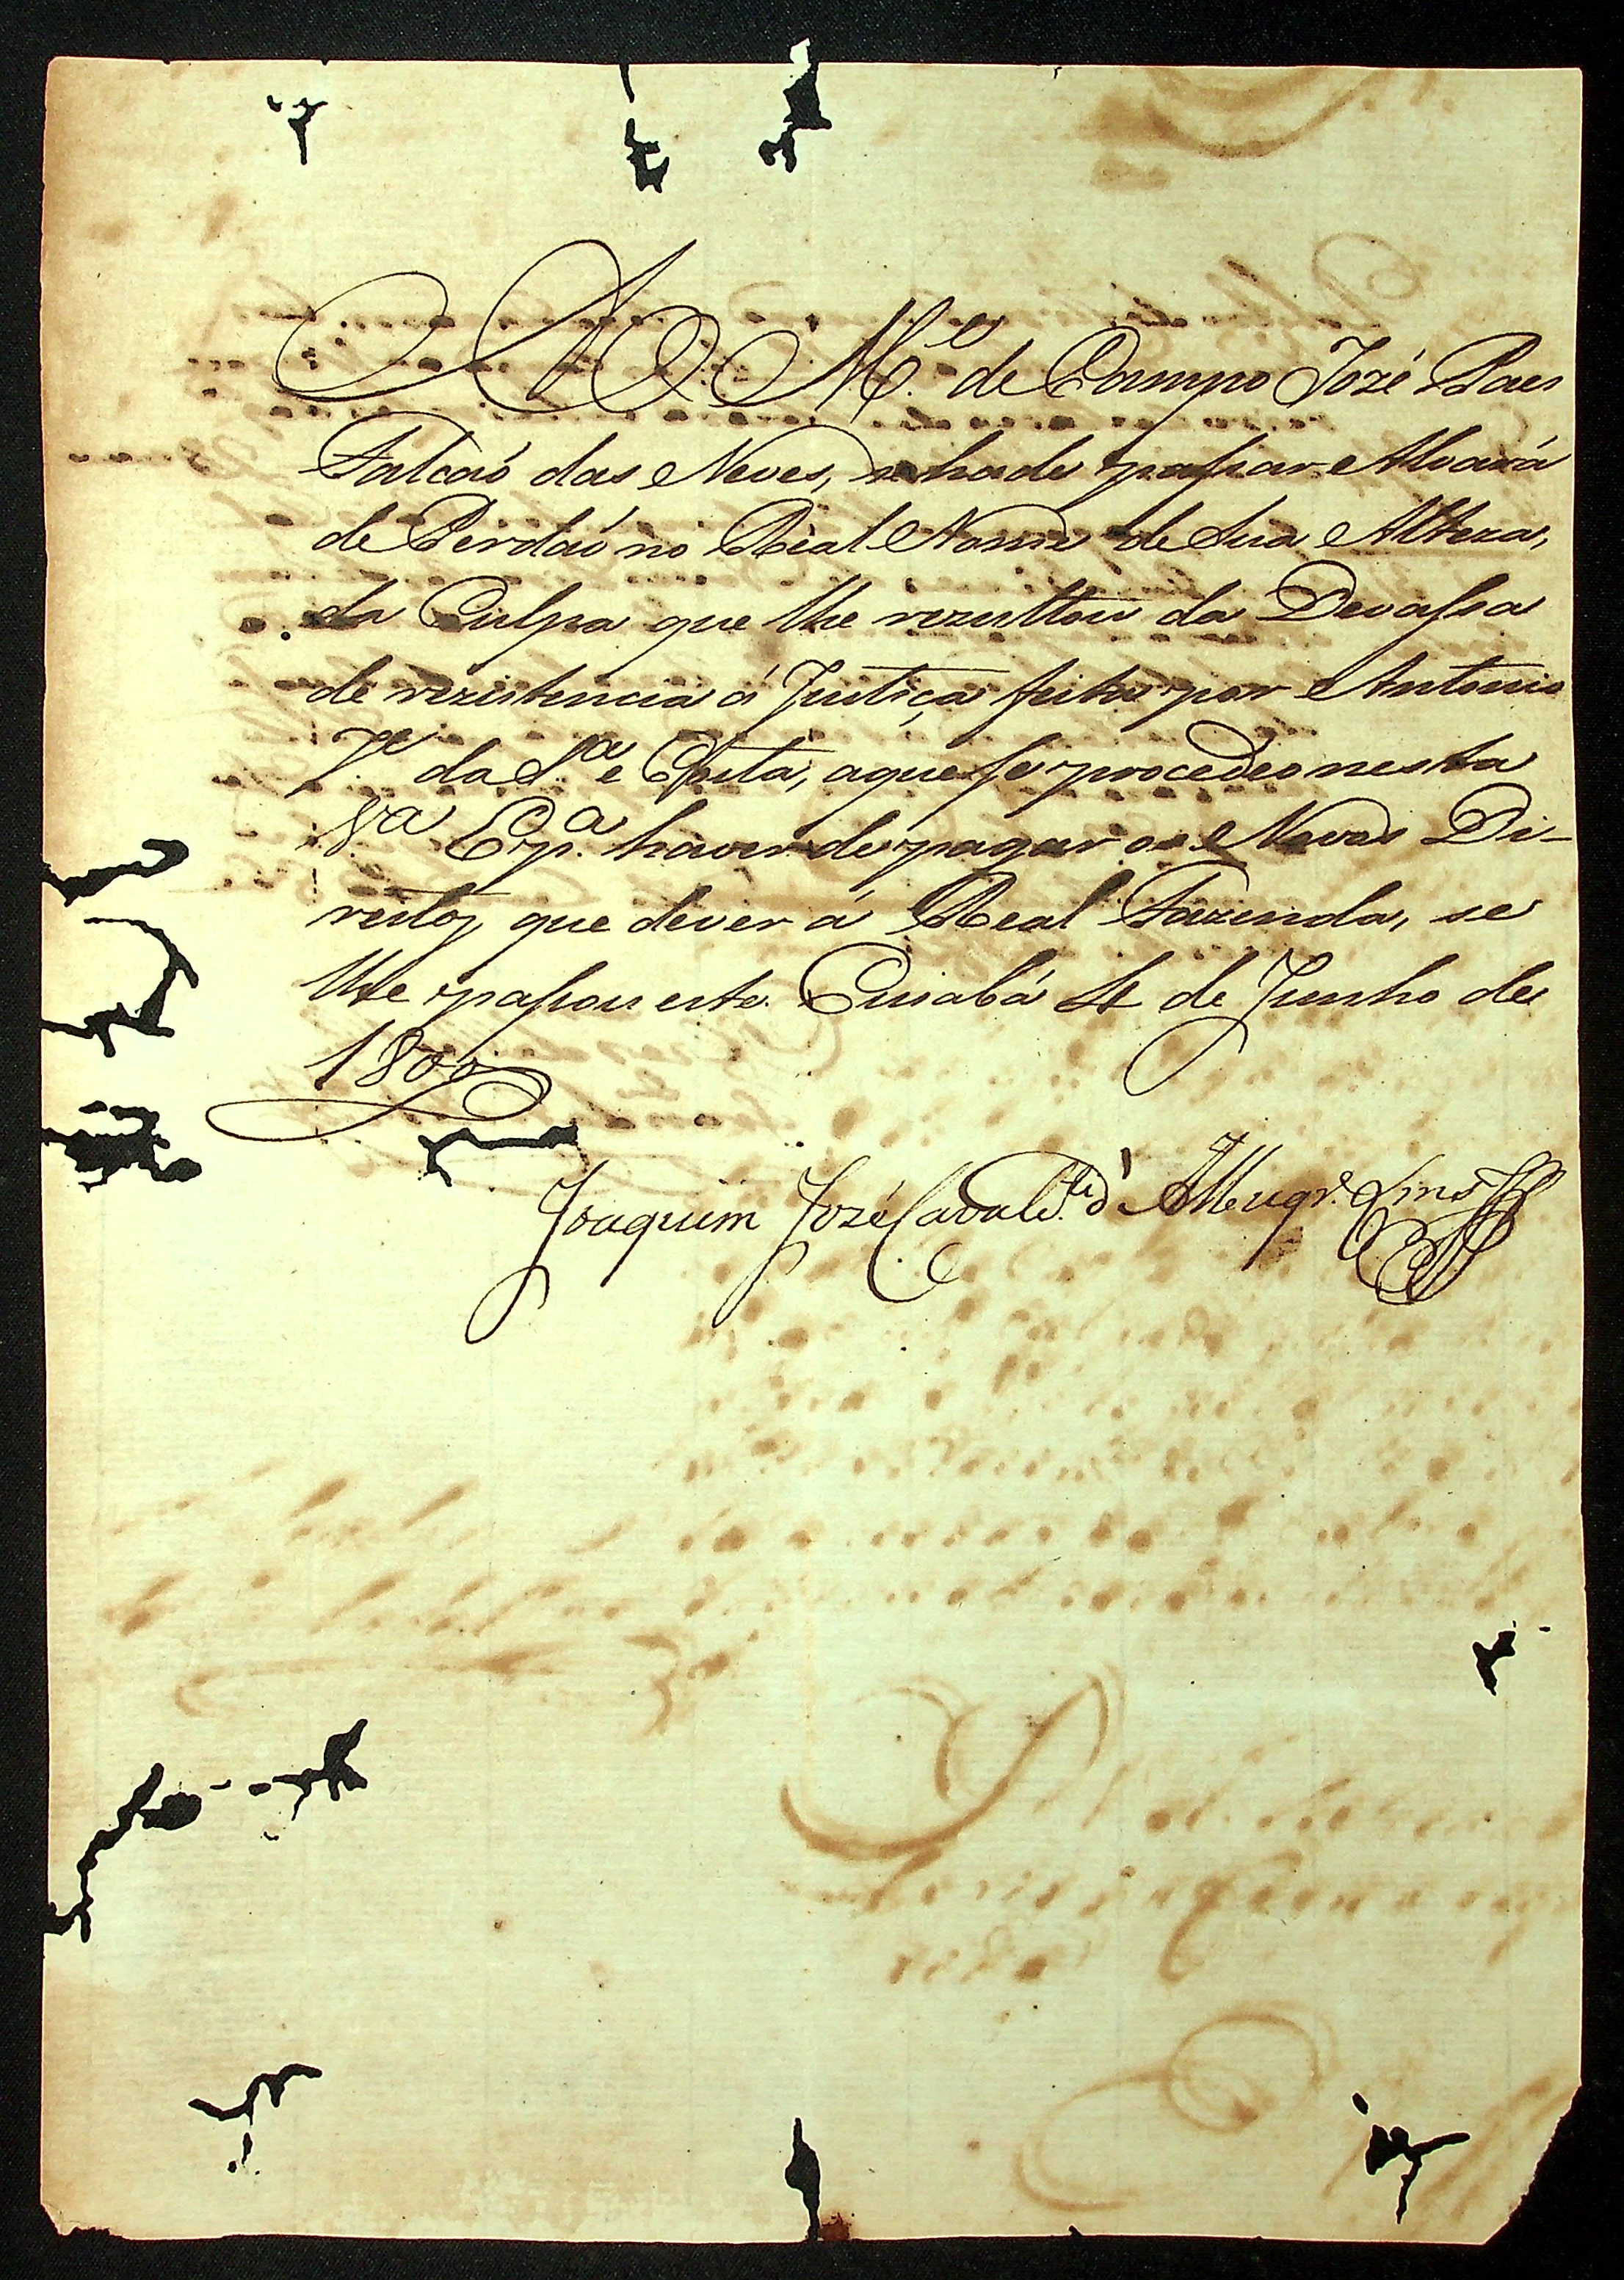 AO M.e de Campo Jozé Paes
Falcaó das Neves, se hade passar Alvará
de Perdaó no Real Nome de Sua Alteza,
da Culpa que lhe rezultou da Devassa
de rezistencia á Justiça feita por Antonio
J.e da S.a e Costa, aque se procedeo nesta
V.a E p.a haver de pagar os Novos Di-
reitos, que dever á Real Fazenda, se
lhe passou este. Cuiabá 4 de Junho de
1800
Joaquim Jozé Cavalc.ti d'Albuqr.e Lins